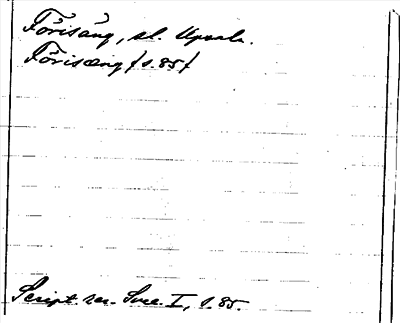 Förisäng, sl. Upsala.
Förisæng /s. 85/
Script. rer. Svec. I, s. 85.